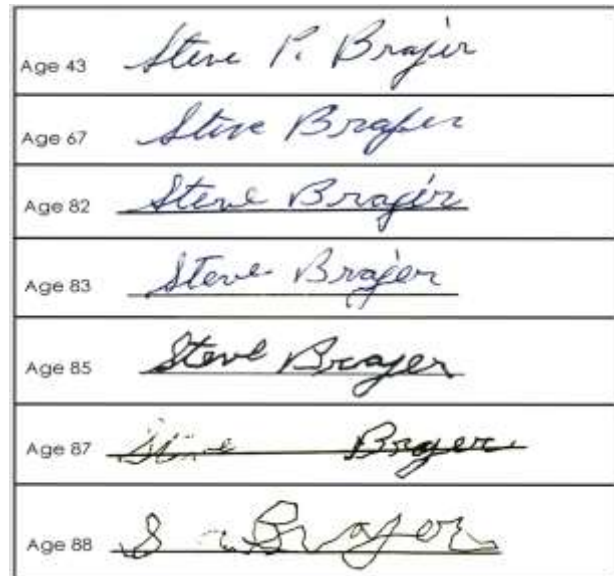 Age 43 Steve P. Brajer
Age 67 Steve Brajer
Age 82 Steve Brajer
Age 83 Steve Brajer
Age 85 Steve Brajer
Age 87 Brajer
Age 88 S Brajer